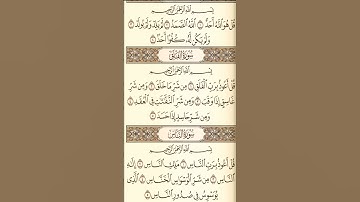 بِسْمِ اللَّهِ الرَّحْمَٰنِ الرَّحِيمِ
قُلْ هُوَ اللَّهُ أَحَدٌ ١ اللَّهُ الصَّمَدُ ٢ لَمْ يَلِدْ وَلَمْ يُولَدْ ٣
وَلَمْ يَكُن لَّهُ كُفُوًا أَحَدٌ ٤
سُورَةُ الْفَلَقِ
بِسْمِ اللَّهِ الرَّحْمَٰنِ الرَّحِيمِ
قُلْ أَعُوذُ بِرَبِّ الْفَلَقِ ١ مِن شَرِّ مَا خَلَقَ ٢ وَمِن شَرِّ
غَاسِقٍ إِذَا وَقَبَ ٣ وَمِن شَرِّ النَّفَّاثَاتِ فِي الْعُقَدِ ٤
وَمِن شَرِّ حَاسِدٍ إِذَا حَسَدَ ٥
سُورَةُ النَّاسِ
بِسْمِ اللَّهِ الرَّحْمَٰنِ الرَّحِيمِ
قُلْ أَعُوذُ بِرَبِّ النَّاسِ ١ مَلِكِ النَّاسِ ٢
إِلَٰهِ النَّاسِ ٣ مِن شَرِّ الْوَسْوَاسِ الْخَنَّاسِ ٤ الَّذِي
يُوَسْوِسُ فِي صُدُورِ النَّاسِ ٥